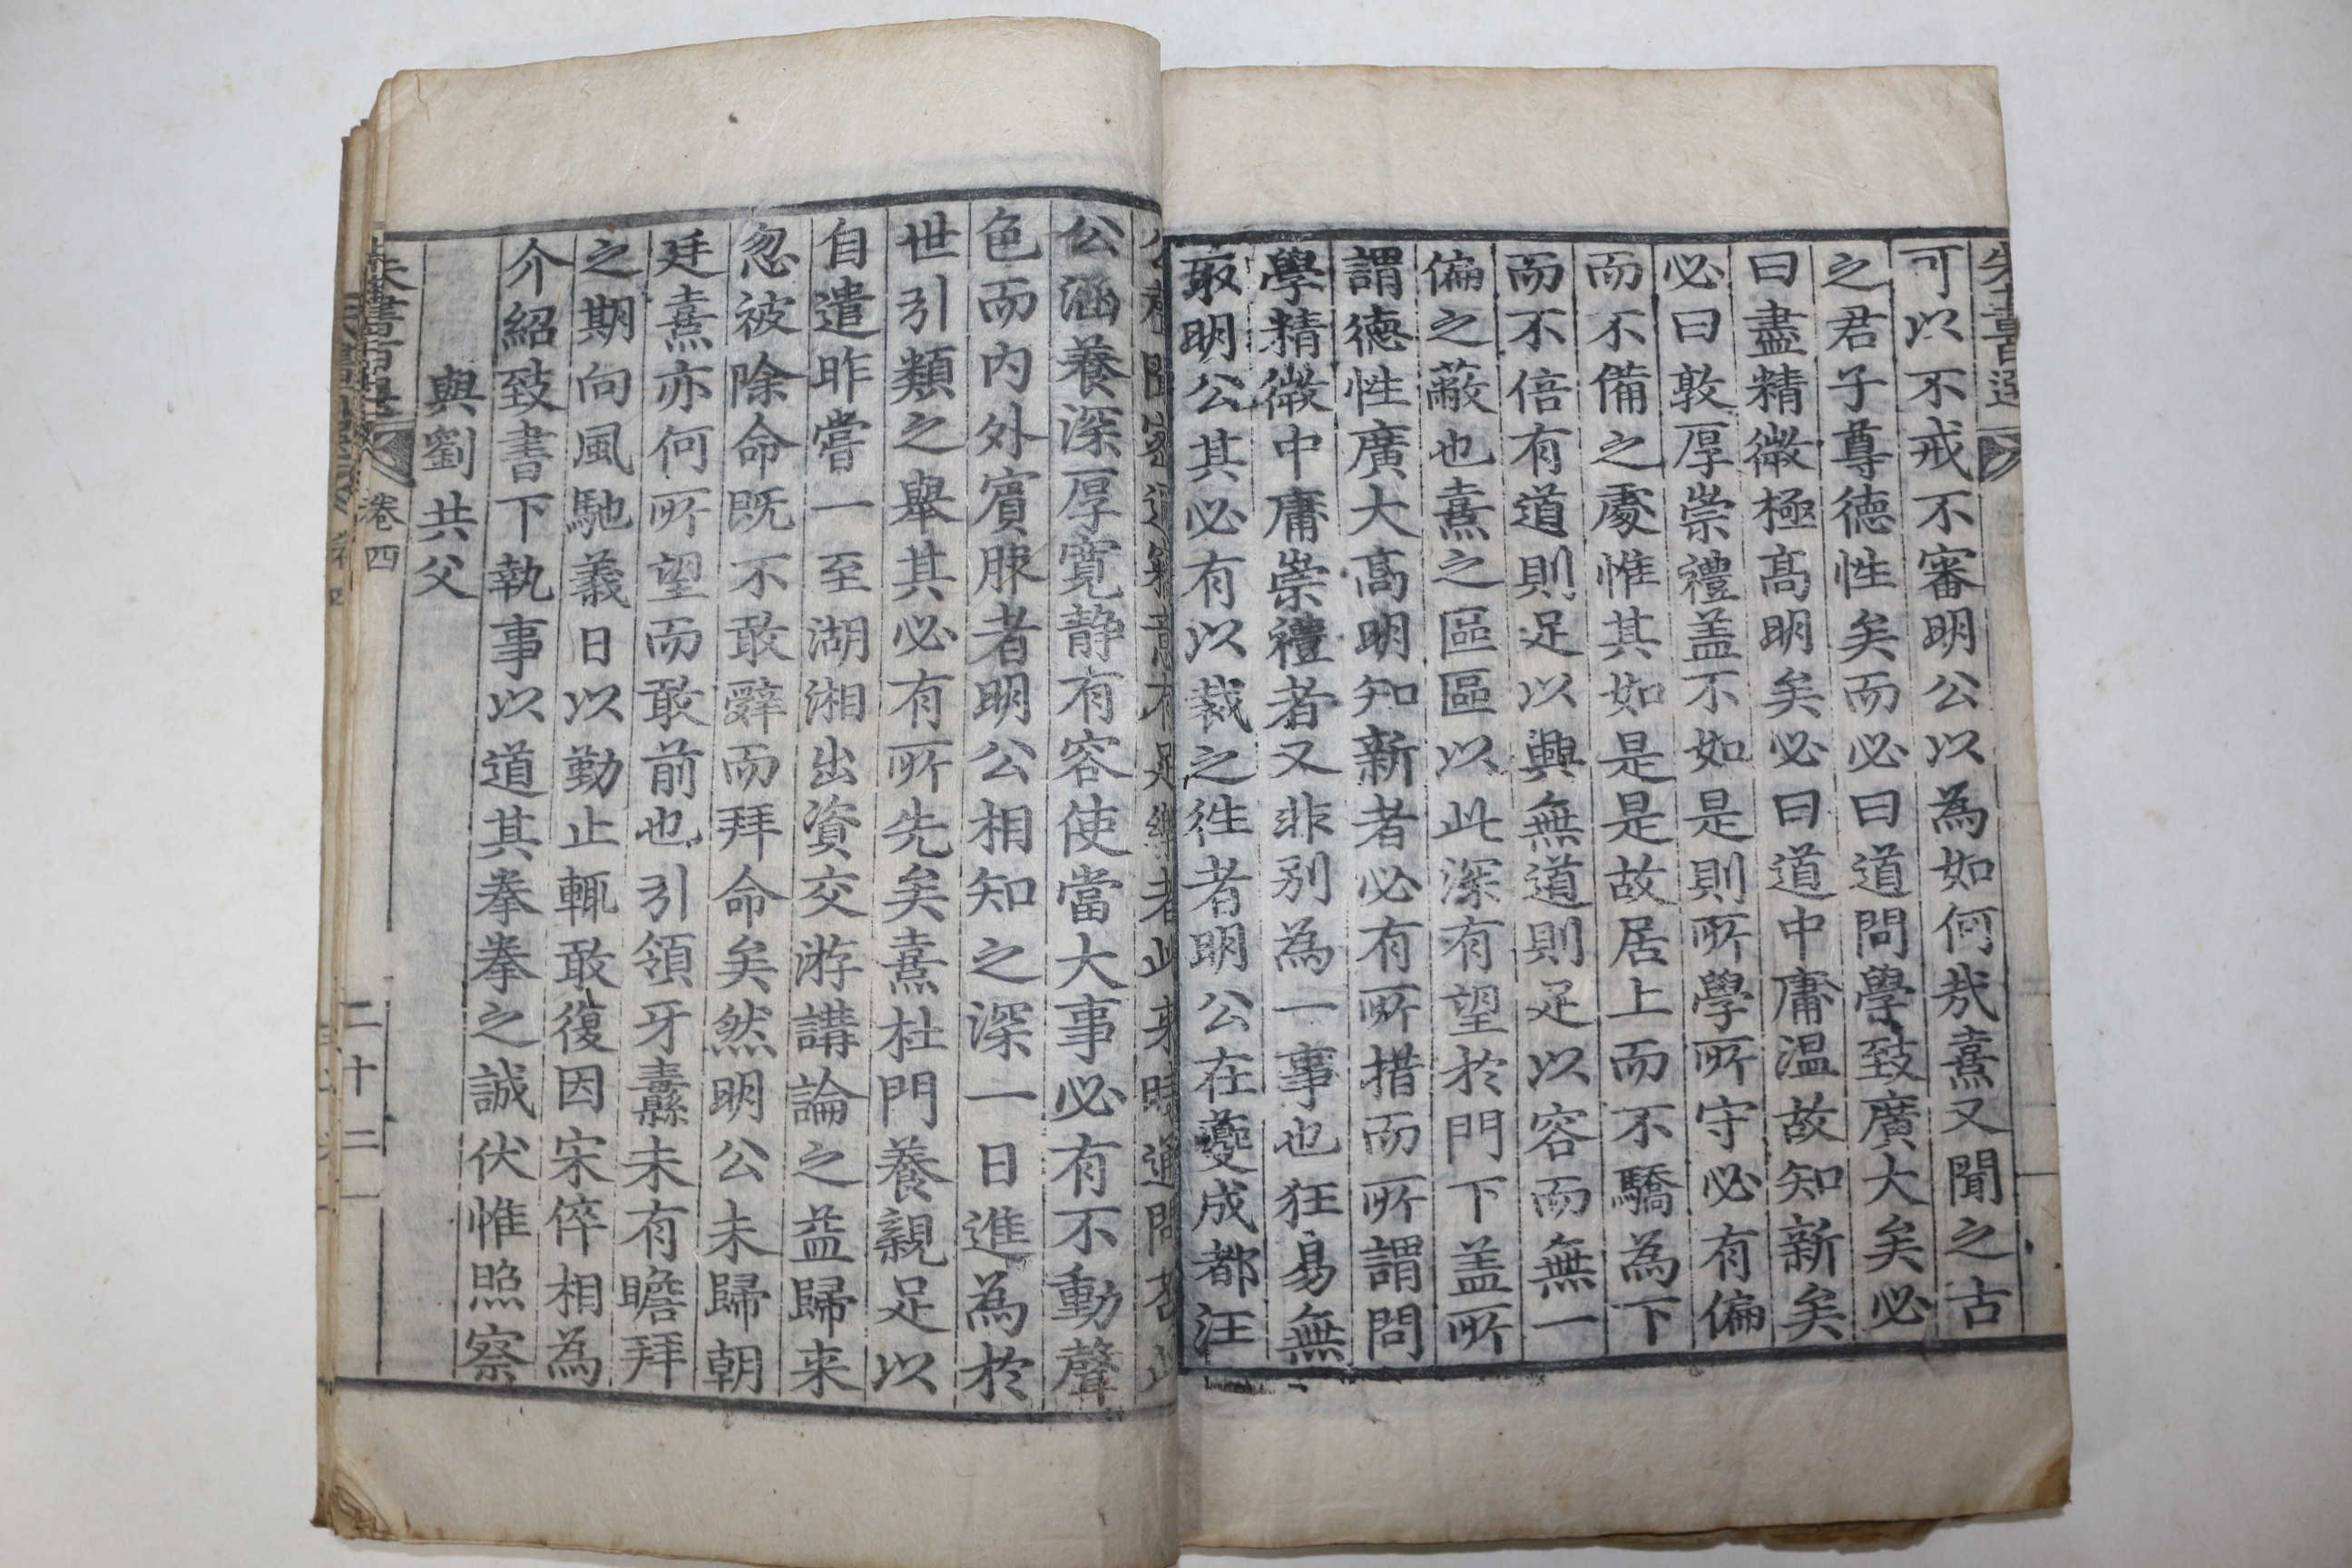 可以不戒不審明公以為如何㢤熹又聞之古
之君子尊德性矣而必曰道問學致廣大矣必
曰盡精微極髙明矣必曰道中庸温故知新矣
必曰敦厚崇禮盖不如是則所學所守必有偏
而不備之處惟其如是是故居上而不驕為下
而不倍有道則足以興無道則足以容而無一
偏之蔽也熹之區區以此深有望於門下盖所
謂德性廣大髙明知新者必有所措而所謂問
學精微中庸崇禮者又非别為一事也狂易無
取明公其必有以裁之徃者明公在夔成都汪
公涵養深厚寛静有容使當大事必有不動聲
色而内外賓服者明公相知之深一日進為於
世引類之舉其必有所先矣熹杜門養親足以
自遣昨嘗一至湖湘出資交游講論之益歸来
忽被除命既不敢辭而拜命矣然明公未歸朝
廷熹亦何所望而敢前也引領牙纛未有瞻拜
之期向風馳義日以勤止輒敢復因宋倅相為
介紹致書下執事以道其拳拳之誠伏惟照察
與劉共父
卷四
二十二